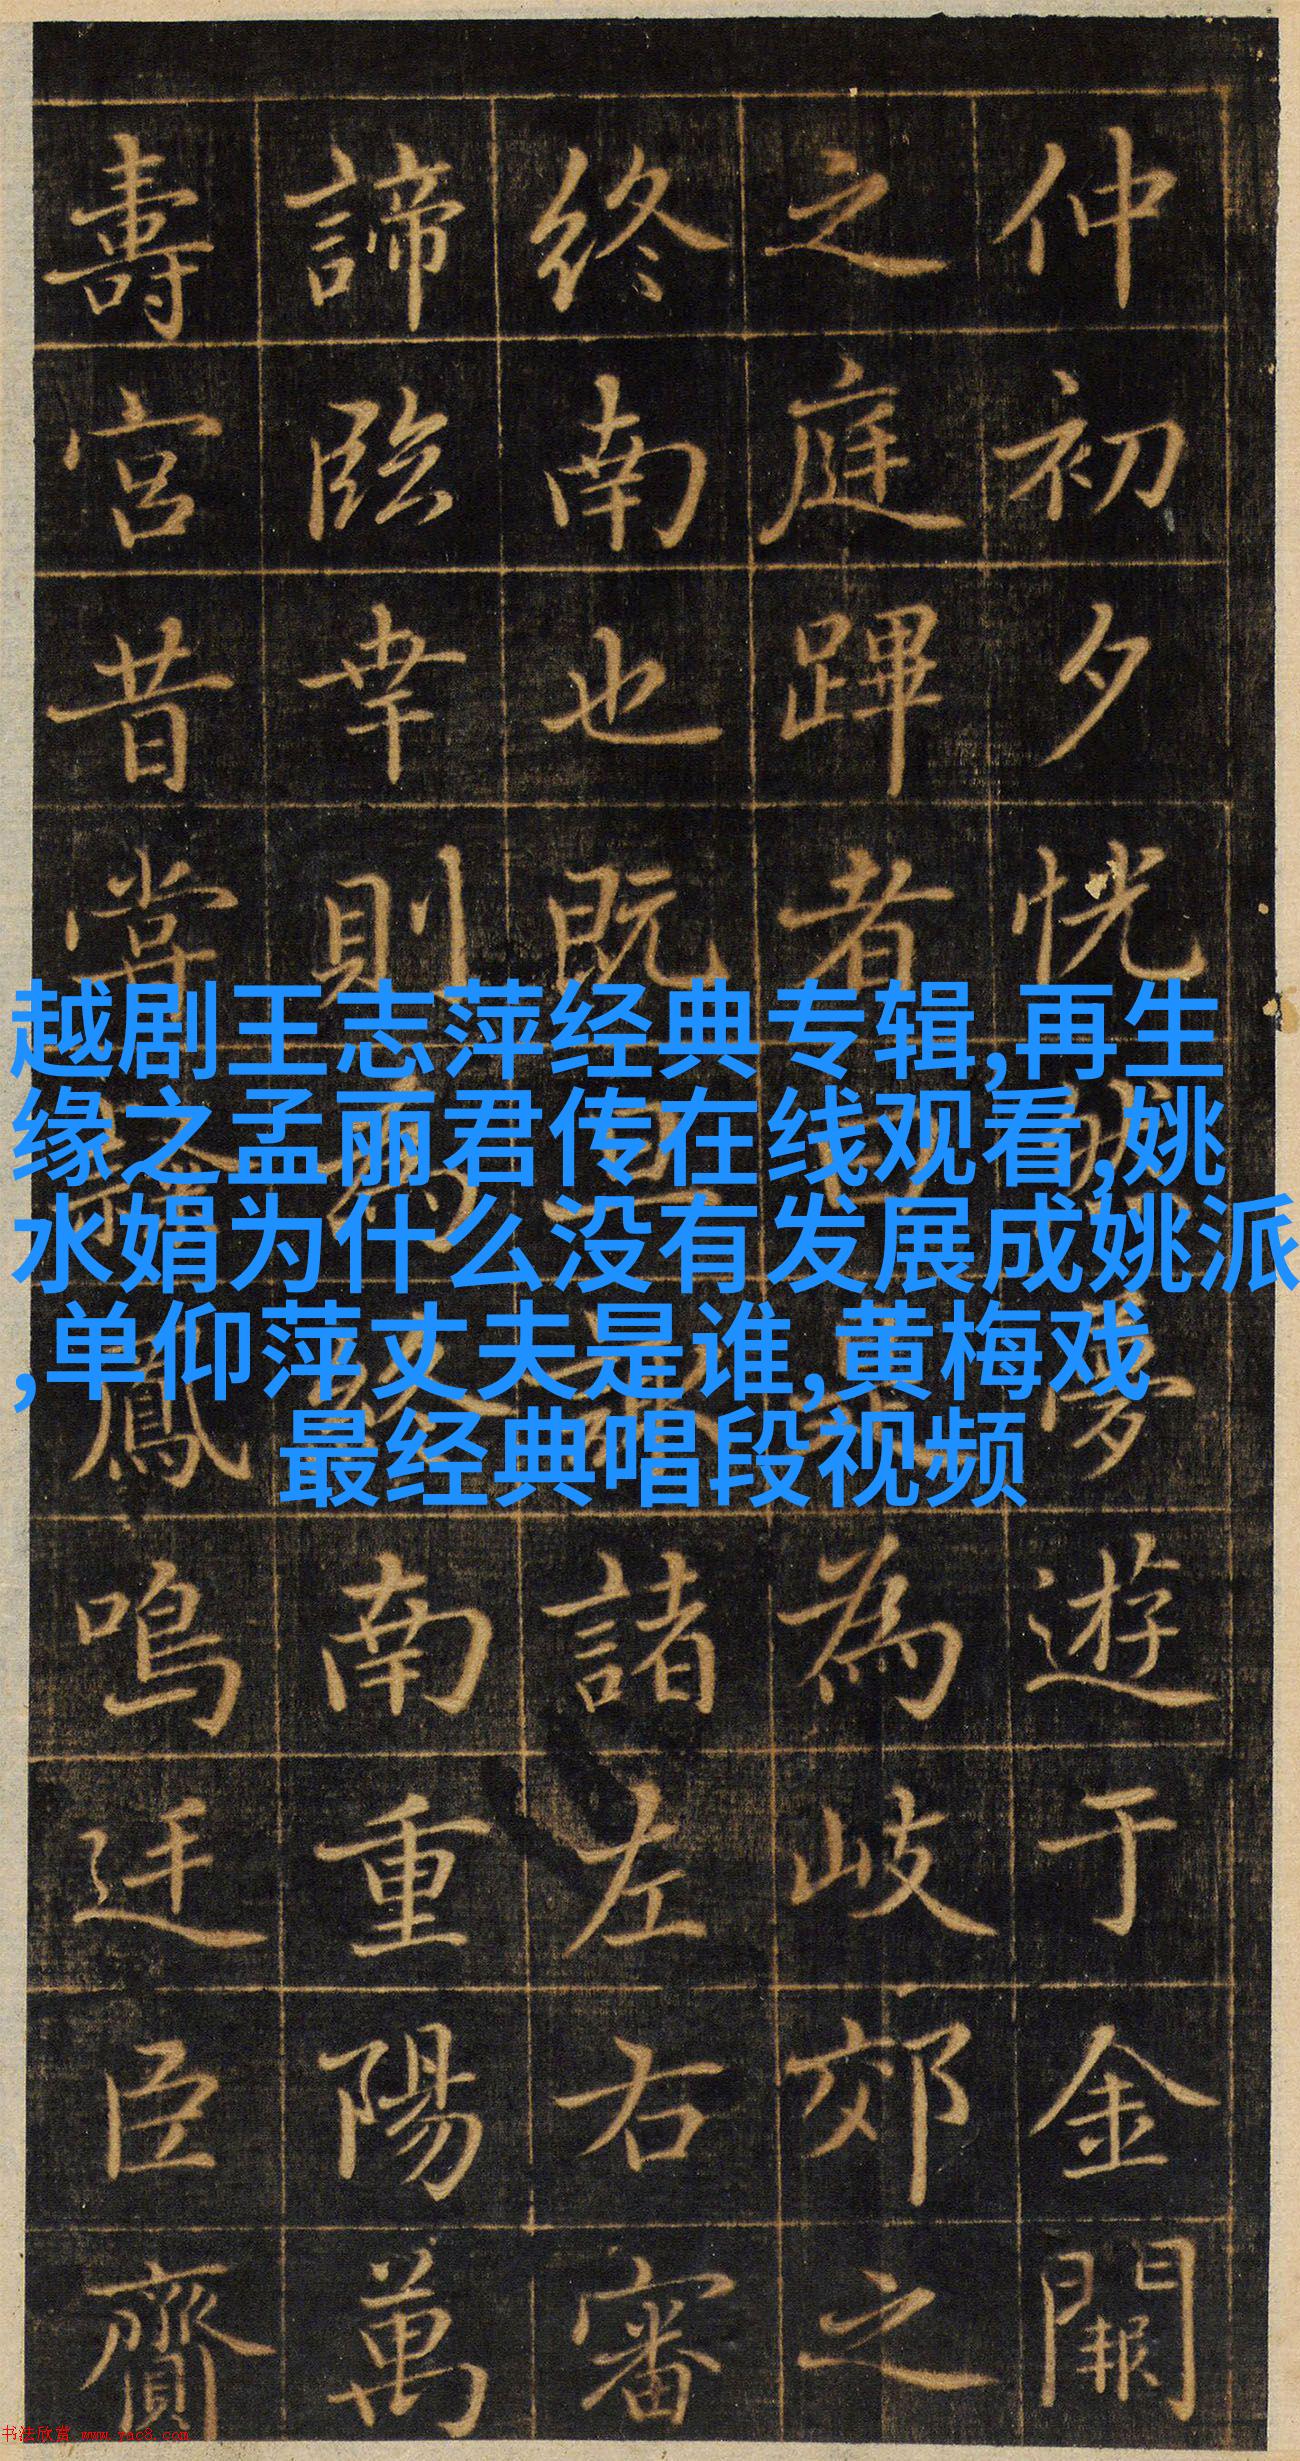 仲初夕恍夢遊于金闕
之庭蹕者為岐郊之
終南也既諸左右審
諦臨幸則南重陽萬
壽宮昔嘗鳳鳴廷臣齎
越剧王志萍经典专辑,再生
缘之孟丽君传在线观看,姚
水娟为什么没有发展成姚派
,单仰萍丈夫是谁,黄梅戏
最经典唱段视频
书法欣赏 www.yac8.com